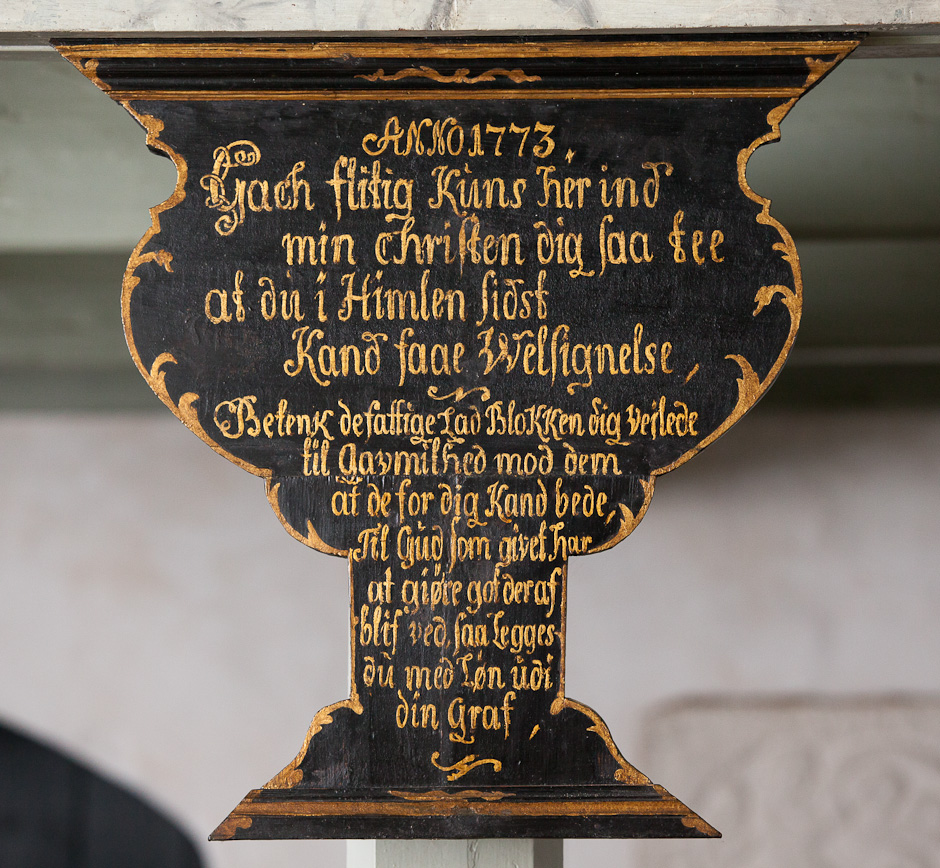 ANNO 1773.
Gach flitig Kùns her ind
min christen dig saa tee
at dù i Himlen sidst
Kand faae Welsignelse,
Betenk defattige Lad BloKKen dig vejlede
til Gavmilhed mod dem
at de for dig Kand bede,
Til Gùd som givet har
at giøre got deraf
blif ved, saa Legges
dù med Løn ùdi
din Graf,